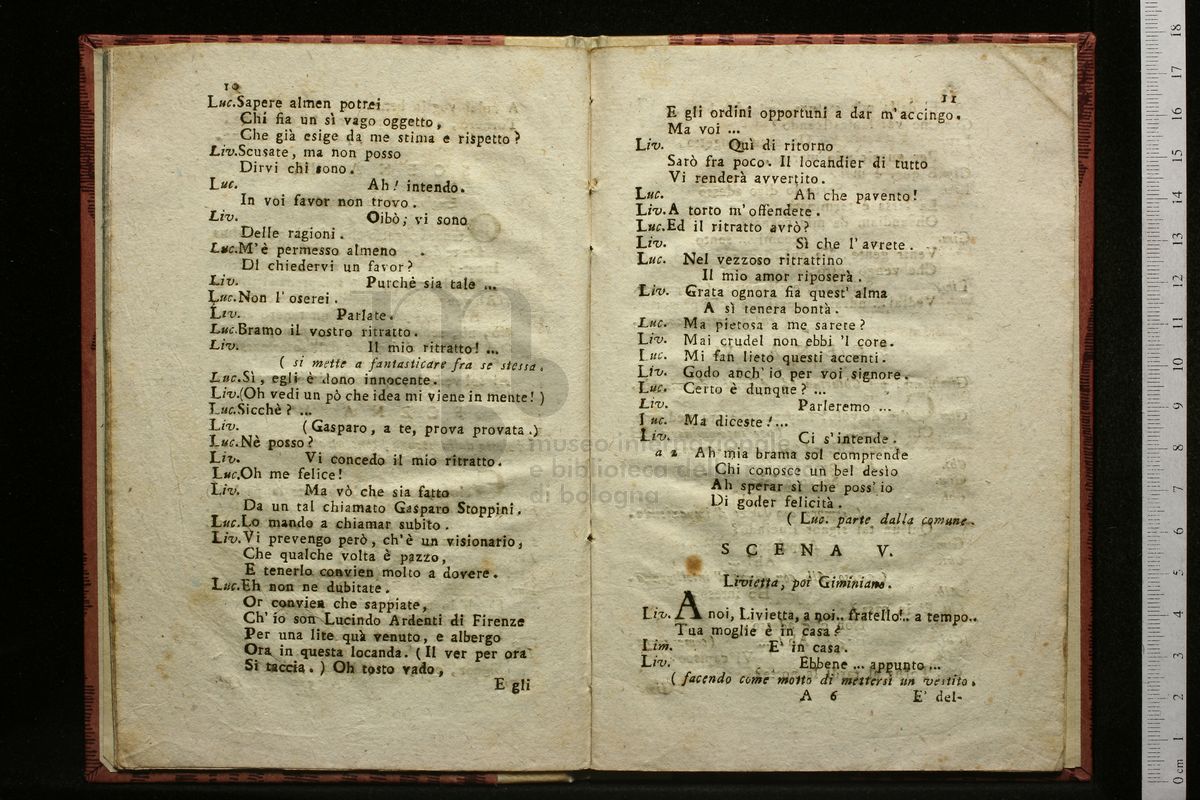 10
Luc.Sapere almen potrei
Chi fia un sì vago oggetto,
Che già esige da me stima e rispetto?
Liv.Scusate, ma non posso
Dirvi chi sono.
Luc. Ah! intendo.
In voi favor non trovo.
Liv. Oibò; vi sono
Delle ragioni.
Luc.M'è permesso almeno
Di chiedervi un favor?
Liv. Purchè sia tale ...
Luc.Non l'oserei.
Liv. Parlate.
Luc.Bramo il vostro ritratto.
Liv. Il mio ritratto! ...
( si mette a fantasticare fra se stessa.
Luc.Sì, egli è dono innocente.
Liv.(Oh vedi un pò che idea mi viene in mente! )
Luc.Sicchè? ...
Liv. (Gasparo, a te, prova provata.)
Luc.Nè posso?
Liv. Vi concedo il mio ritratto.
Luc.Oh me felice!
Liv. Ma vò che sia fatto
Da un tal chiamato Gasparo Stoppini.
Luc.Lo mando a chiamar subito.
Liv.Vi prevengo però, ch'è un visionario,
Che qualche volta è pazzo,
E tenerlo convien molto a dovere.
Luc.Eh non ne dubitate.
Or convien che sappiate,
Ch'io son Lucindo Ardenti di Firenze
Per una lite quà venuto, e albergo
Ora in questa locanda. (Il ver per ora
Si taccia.) Oh tosto vado,
E gli
11
E gli ordini opportuni a dar m'accingo.
Ma voi ...
Liv. Quì di ritorno
Sarò fra poco. Il locandier di tutto
Vi renderà avvertito.
Luc. Ah che pavento!
Liv.A torto m'offendete.
Luc.Ed il ritratto avrò?
Liv. Sì che l'avrete.
Luc. Nel vezzoso ritrattino
Il mio amor riposerà.
Liv. Grata ognora fia quest' alma
A sì tenera bontà.
Luc. Ma pietosa a me sarete?
Liv. Mai crudel non ebbi 'l core.
Luc. Mi fan lieto questi accenti.
Liv. Godo anch' io per voi signore.
Luc. Certo è dunque? ...
Liv. Parleremo ...
Luc. Ma diceste!...
Liv. Ci s'intende.
a 2 Ah mia brama sol comprende
Chi conosce un bel desìo
Ah sperar sì che poss' io
Di goder felicità.
( Luc. parte dalla comune.
SCENA V.
Livietta, poi Giminiano.
Liv. A noi, Livietta, a noi.. fratello!.. a tempo..
Tua moglie è in casa?
Gim. E' in casa.
Liv. Ebbene ... appunto ...
( facendo come motto di mettersi un vestito.
A 6 E' del-
museo internazionale
e biblioteca della
di bologna
0 cm 1 2 3 4 5 6 7 8 9 10 11 12 13 14 15 16 17 18